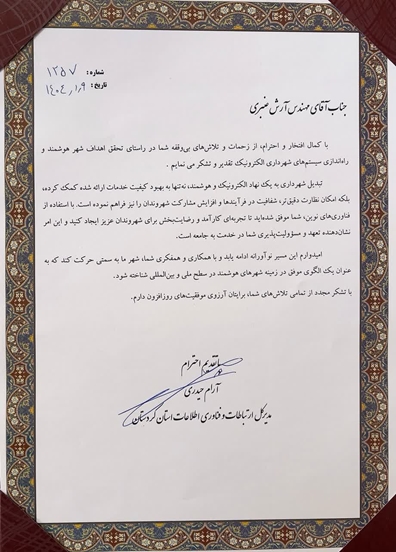 شماره : ۱۲۵۷
تاریخ : ۱۴۰۴/۱/۹
جناب آقای مهندس آرش عنبری
با کمال افتخار و احترام، از زحمات و تلاش‌های بی‌وقفه شما در راستای تحقق اهداف شهر هوشمند و
راه‌اندازی سیستم‌های شهرداری الکترونیک تقدیر و تشکر می نمایم .
تبدیل شهرداری به یک نهاد الکترونیک و هوشمند، نه‌تنها به بهبود کیفیت خدمات ارائه شده کمک کرده،
بلکه امکان نظارت دقیق‌تر، شفافیت در فرآیندها و افزایش مشارکت شهروندان را نیز فراهم نموده است. با استفاده از
فناوری‌های نوین، شما موفق شده‌اید تا تجربه‌ای کارآمد و رضایت‌بخش برای شهروندان عزیز ایجاد کنید و این امر
نشان‌دهنده تعهد و مسؤولیت‌پذیری شما در خدمت به جامعه است.
امیدوارم این مسیر نوآورانه ادامه یابد و با همکاری و همفکری شما، شهر ما به سمتی حرکت کند که به
عنوان یک الگوی موفق در زمینه شهرهای هوشمند در سطح ملی و بین‌المللی شناخته شود.
با تشکر مجدد از تمامی تلاش‌های شما، برایتان آرزوی موفقیت‌های روزافزون دارم.
با تقدیم احترام
آرام حیدری
مدیرکل ارتباطات و فناوری اطلاعات استان کردستان